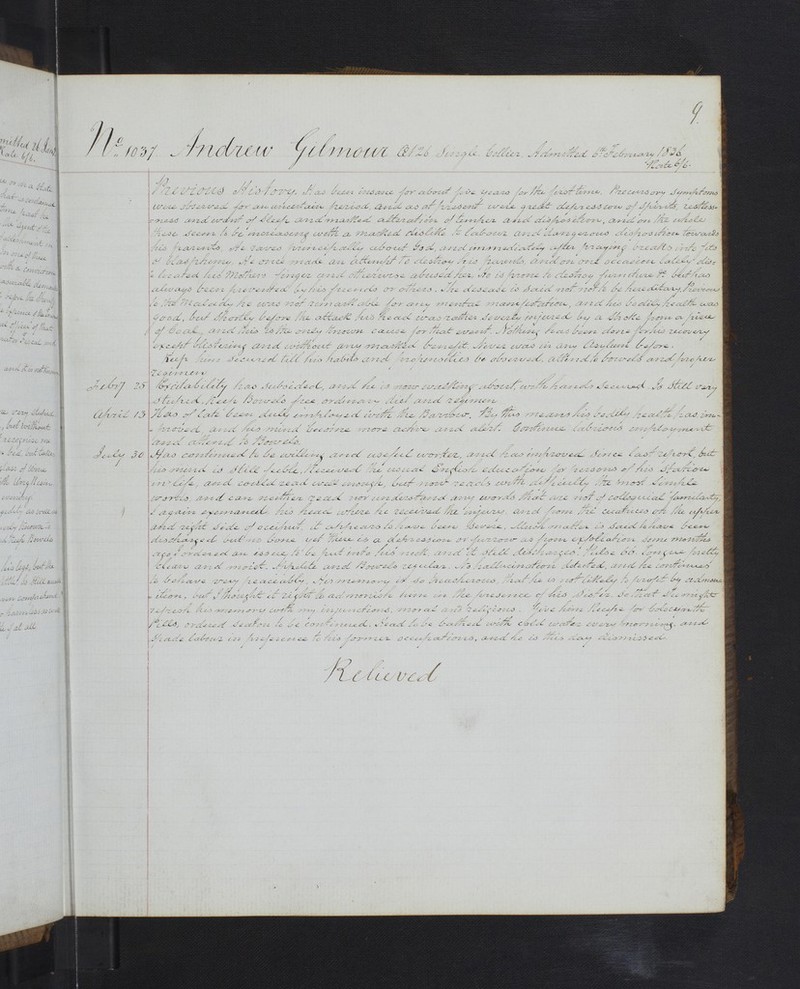 9.
No. 1037. Andrew Gilmour Æt 26. Single. Collier. Admitted 6th February 1836
Rate 6/6.
Previous History. Has been insane for about five years for the first time. Precursory symptoms
were observed for an uncertain period, and as at present were great depression of spirits, restless-
ness and want of sleep and marked alteration of temper and disposition, and on the whole
these seem to be increasing with a marked dislike to labour and dangerous disposition towards
his parents. He raves principally about God, and immediately after praying breaks into fits
of blasphemy. He once made an attempt to destroy his parents, and on one occasion lately dis-
located his Mothers finger and otherwise abused her. He is prone to destroy furniture &c but has
always been prevented by his friends or others. The disease is said not to be hereditary, Previous
to the Malady he was not remarkable for any mental manifestation, and his bodily health was
good, but shortly before the attack his head was rather severely injured by a stroke from a piece
of Coal, and this is the only known cause for that event. Nothing has been done for his recovery
except blistering and without any marked benefit. Never was in any Asylum before.
Keep him secured till his habits and propensities be observed, attend to bowels and proper
regimen
Feby 25 Excitability has subsided, and he is now walking about, with hands secured. Is still very
stupid. Keep Bowels free ordinary diet and regimen
April 13 Has of late been duly employed with the Barrow. By this means his bodily health has im-
proved, and his mind become more active and alert. Continue laborious employment
and attend to Bowels.
July 30 Has continued to be a willing and useful worker, and has improved since last report, but
his mind is still feeble. Received the usual English education for persons of his Station
in life, and could read well enough, but now reads with difficulty the most simple
works, and can neither read nor understand any words that are not of colloquial familiarity.
I again examined his head where he received the injury, and from the cicatrices on the upper
and right side of occiput, it appears to have been severe. Much matter is said to have been
discharged but no bone yet there is a depression or furrow as from exfoliation some months
ago I ordered an issue to be put into his neck and it still discharges. Pulse 60 Tongue pretty
clean and moist. Appetite and Bowels regular. No hallucination detected, and he continues
to behave very peaceably. His memory is so treacherous that he is not likely to profit by admon-
ition, but I thought it right to admonish him in the presence of his Sister, so that she might
refresh his memory with my injunctions, moral and religious. Gave him Recipe for Colocynth
Pills, ordered seaton to be continued, Head to be bathed with cold water every morning, and
Spade labour in preference to his former occupations, and he is this day dismissed
Relieved